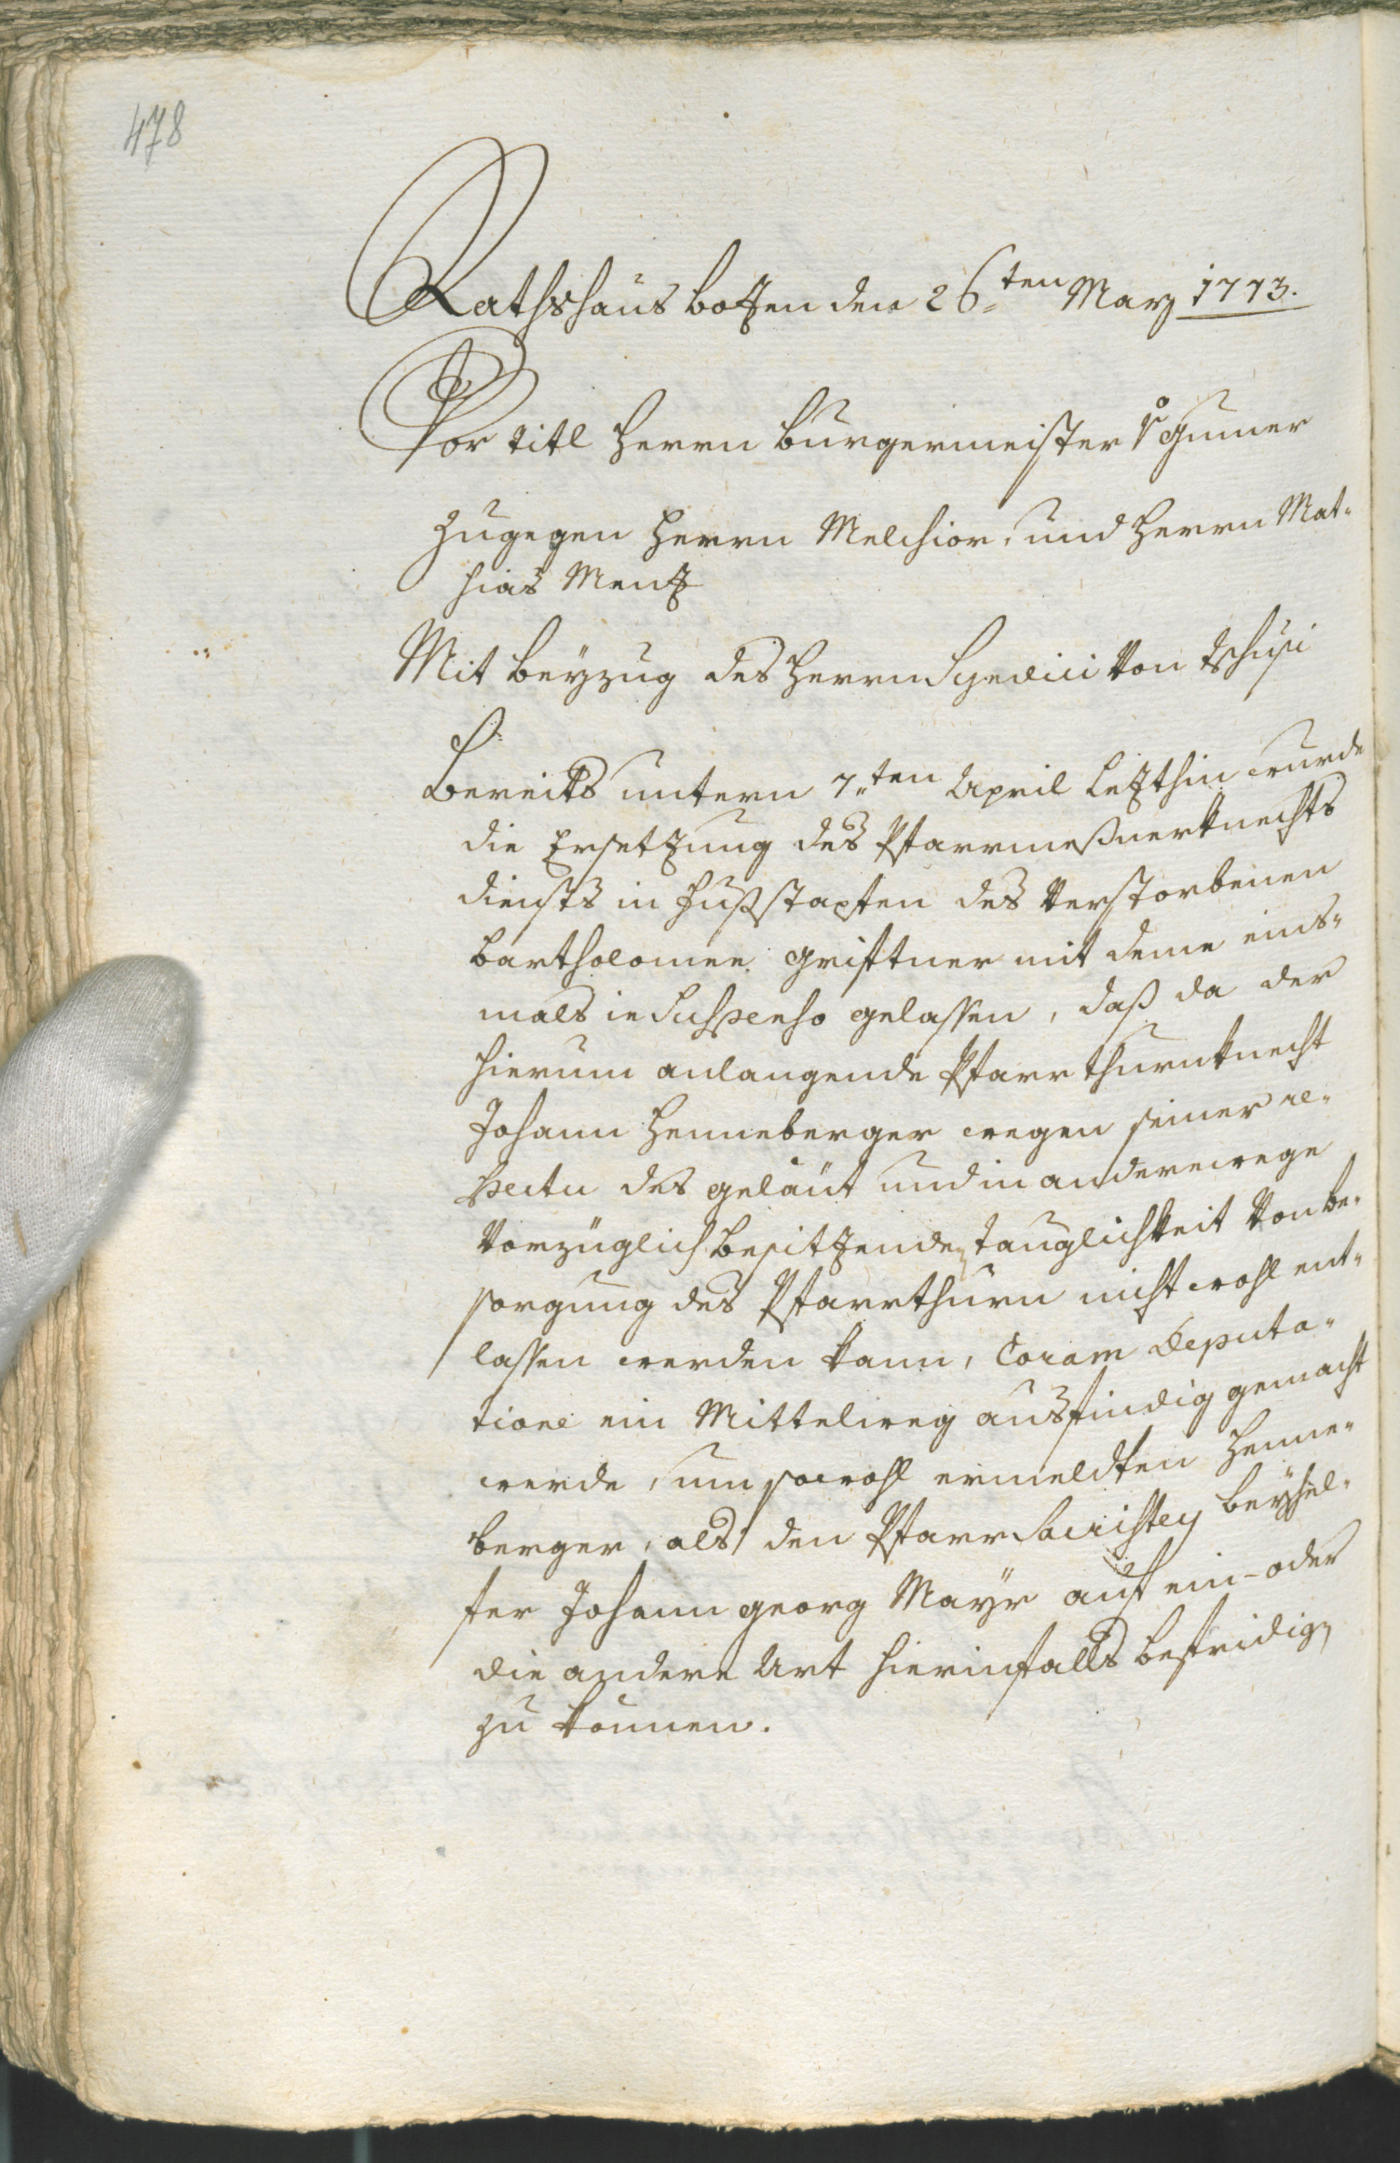 478
Rathshaus Botzen den 26.ten Marz 1773.
Vor titl Herrn Burgermeister v Gumer
Zugegen Herrn Melchior, und Herrn Mat-
hias Menz
Mit Beyzug des Herrn Syndici von Tschusi
Bereits untern 7.ten April letzthin wurde
die Ersetzung des Pfarrmeßnerknechts
diensts in Fußstapfen des verstorbenen
Bartholomee Grifftner mit deme eins-
mals in Suspenso gelassen, daß da der
hierum anlangende Pfarrthurnknecht
Johann Henneberger wegen seiner re-
spectu des geläut und in anderewege
vorzüglich besitzenden tauglichkeit von be-
sorgung des Pfarrthurn nicht wohl ent-
lassen werden kann, Coram Deputa-
tione ein Mittelweg ausfindig gemacht
werde, um sowohl ermeldten Henne-
berger, als den Pfarr Sacristey beyhel-
fer Johann Georg Mayr auf ein- oder
die andere Art hierinfalls befridigen
zu können.